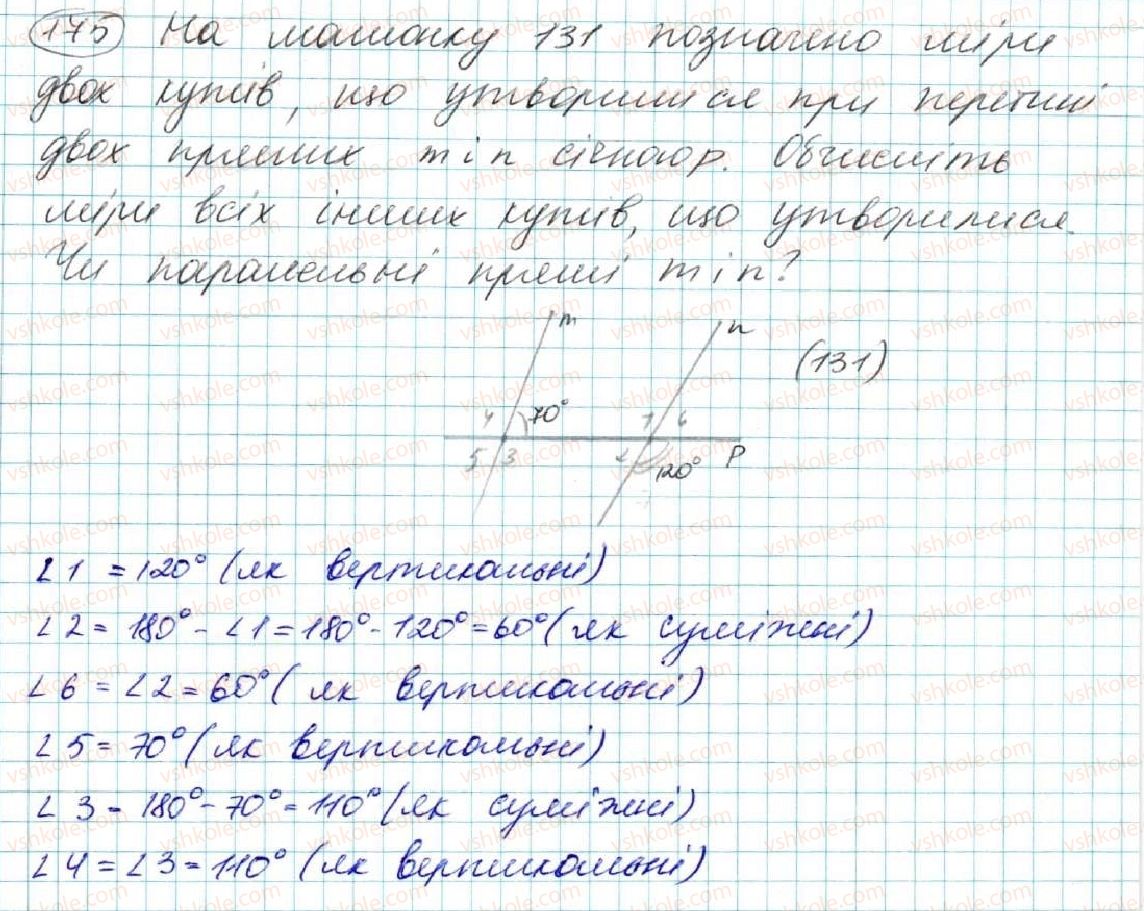 175 На малюнку 131 позначено міри
двох кутів, що утворилися при перетині
двох прямих m і n січною p. Обчисліть
міри всіх інших кутів, що утворилися.
Чи паралельні прямі m і n?
m n
(131)
4 70° 1 6
5 3 2 120° p
∠1 = 120° (як вертикальні)
∠2 = 180° - ∠1 = 180° - 120° = 60° (як суміжні)
∠6 = ∠2 = 60° (як вертикальні)
∠5 = 70° (як вертикальні)
∠3 = 180° - 70° = 110° (як суміжні)
∠4 = ∠3 = 110° (як вертикальні)
vshkole.com